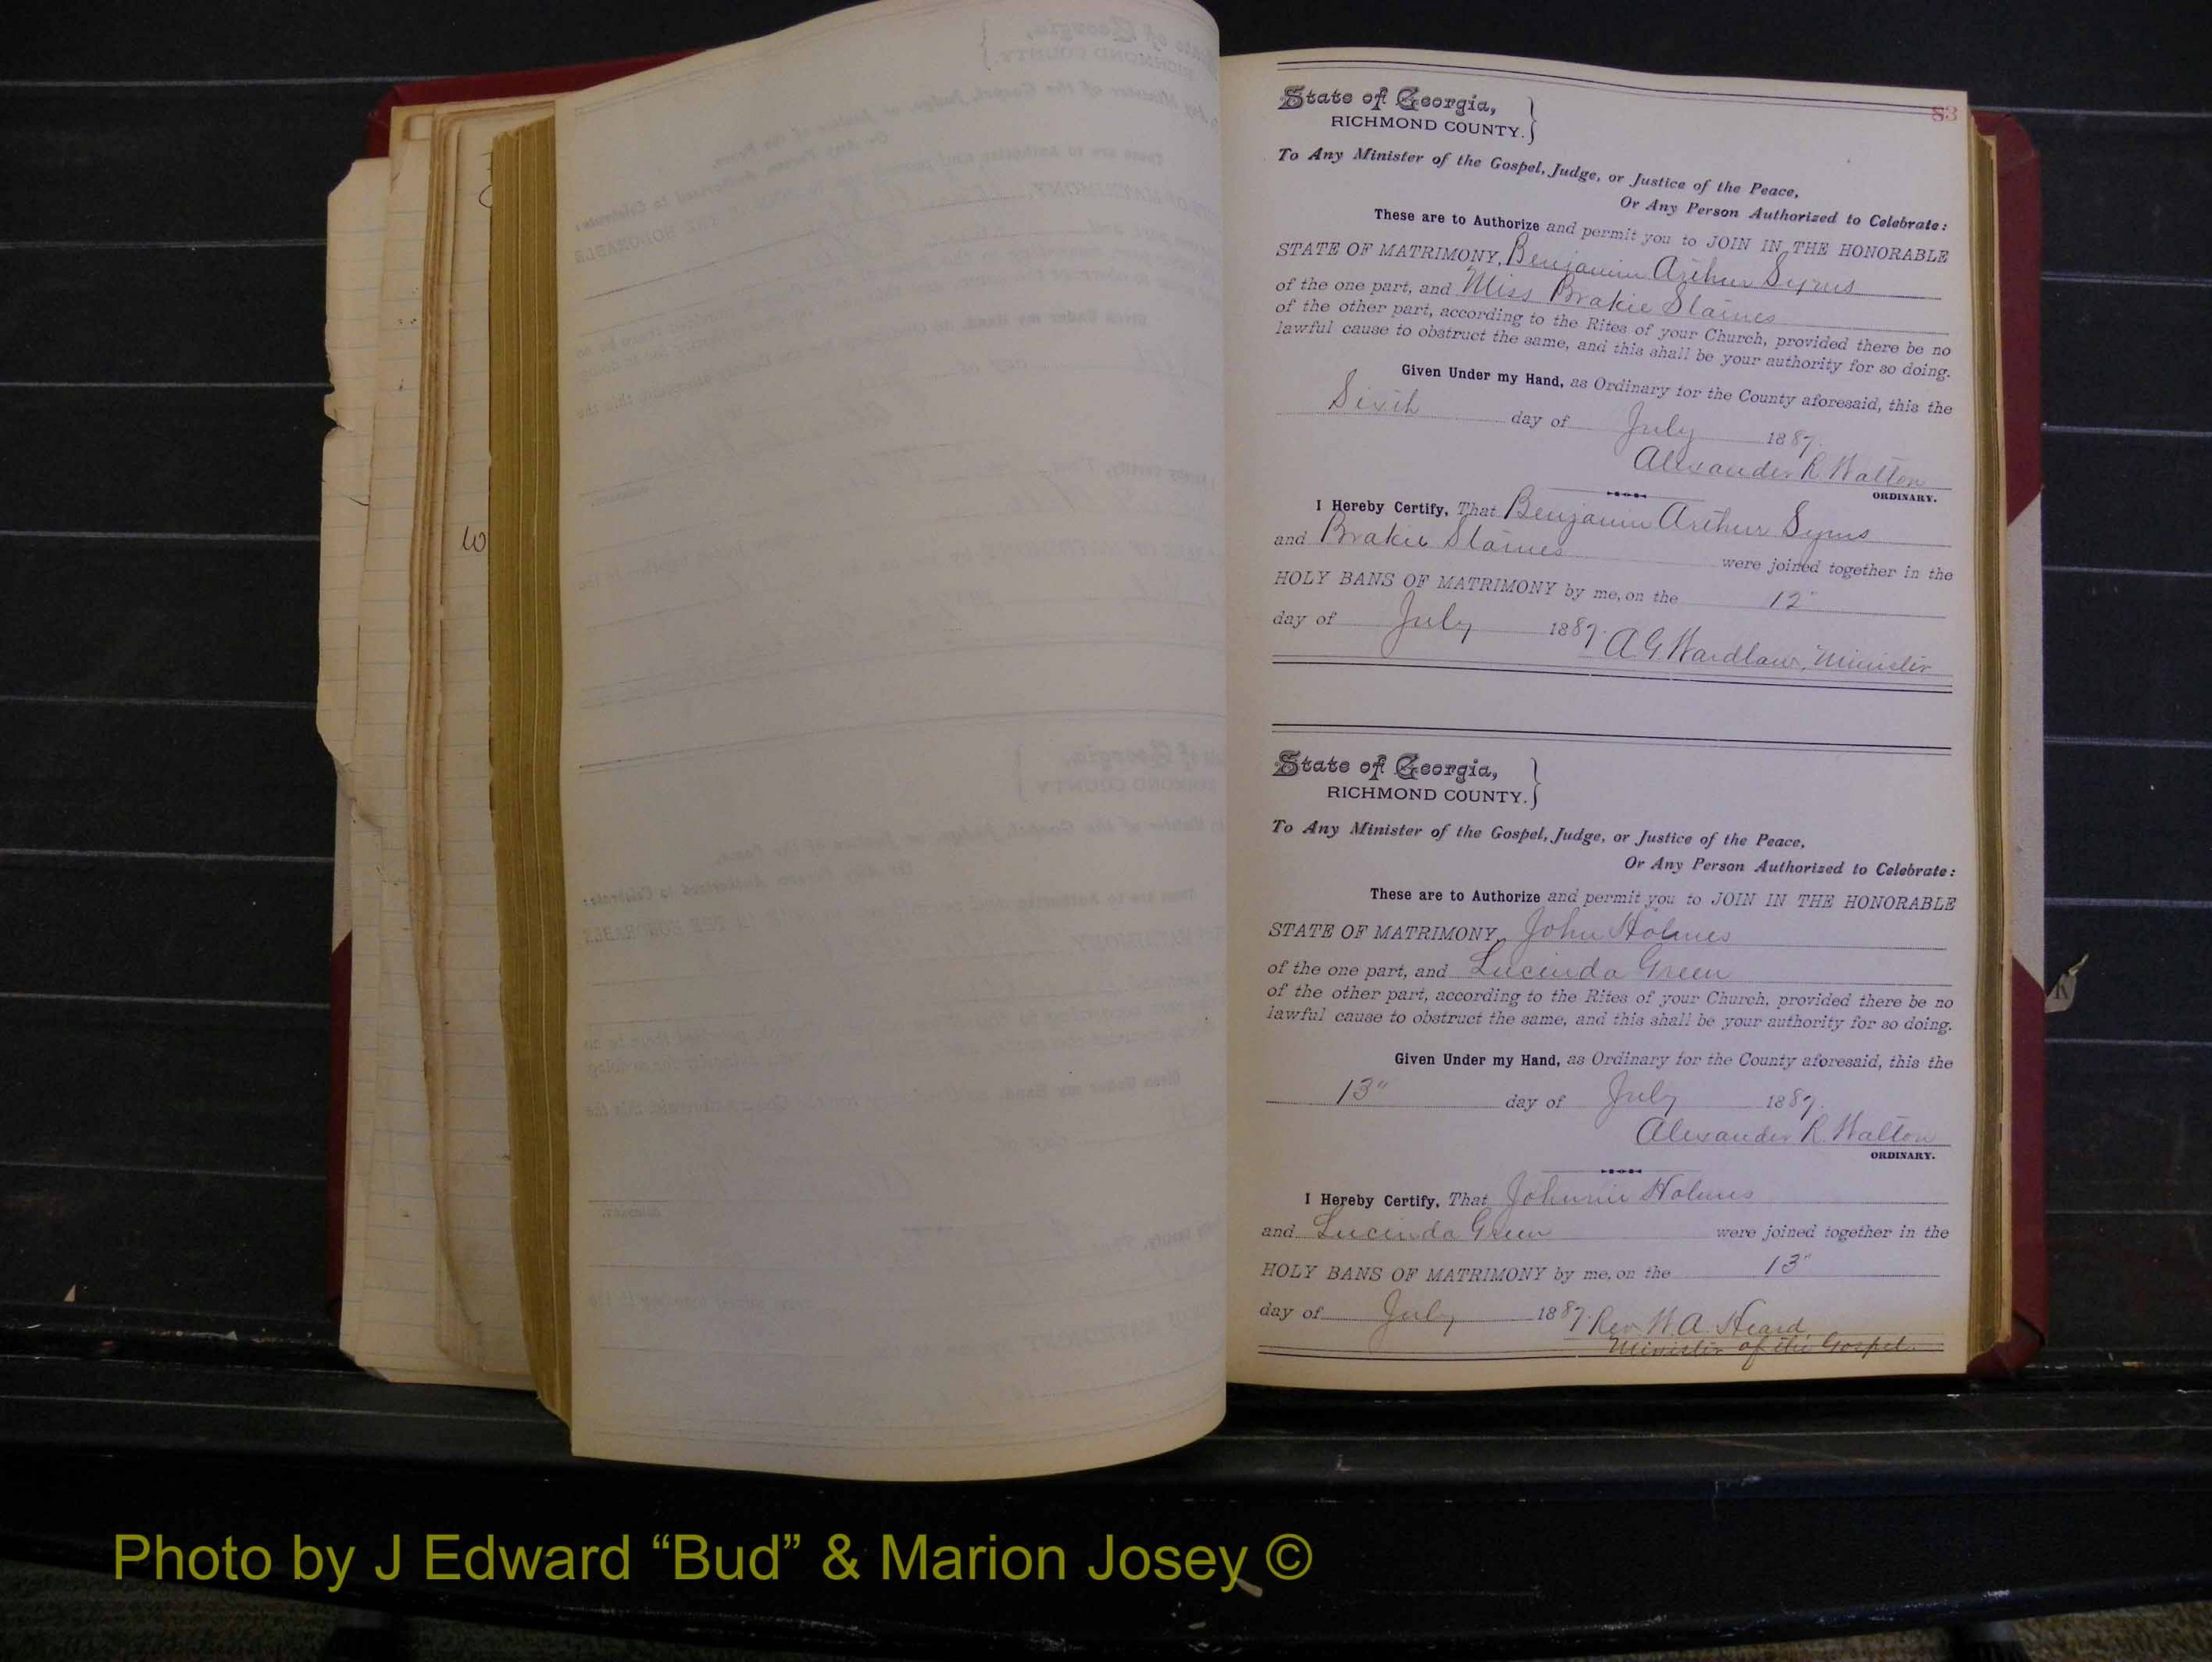 83
State of Georgia,
RICHMOND COUNTY.
To Any Minister of the Gospel, Judge, or Justice of the Peace,
Or Any Person Authorized to Celebrate:
These are to Authorize and permit you to JOIN IN THE HONORABLE
STATE OF MATRIMONY, Benjamin Arthur Syms
of the one part, and Miss Brakie Staines
of the other part, according to the Rites of your Church, provided there be no
lawful cause to obstruct the same, and this shall be your authority for so doing.
Given Under my Hand, as Ordinary for the County aforesaid, this the
Sixth day of July 1887.
Alexander R. Walton
ORDINARY.
I Hereby Certify, That Benjamin Arthur Syms
and Brakie Staines were joined together in the
HOLY BANS OF MATRIMONY by me, on the 12"
day of July 1887. A G Wardlaw, Minister
State of Georgia,
RICHMOND COUNTY.
To Any Minister of the Gospel, Judge, or Justice of the Peace,
Or Any Person Authorized to Celebrate:
These are to Authorize and permit you to JOIN IN THE HONORABLE
STATE OF MATRIMONY, John Holmes
of the one part, and Lucinda Green
of the other part, according to the Rites of your Church, provided there be no
lawful cause to obstruct the same, and this shall be your authority for so doing.
Given Under my Hand, as Ordinary for the County aforesaid, this the
13" day of July 1887.
Alexander R. Walton
ORDINARY.
I Hereby Certify, That Johnnie Holmes
and Lucinda Green were joined together in the
HOLY BANS OF MATRIMONY by me, on the 13"
day of July 1887. Rev W. A. Heard,
Minister of the Gospel.
Photo by J Edward “Bud” & Marion Josey ©